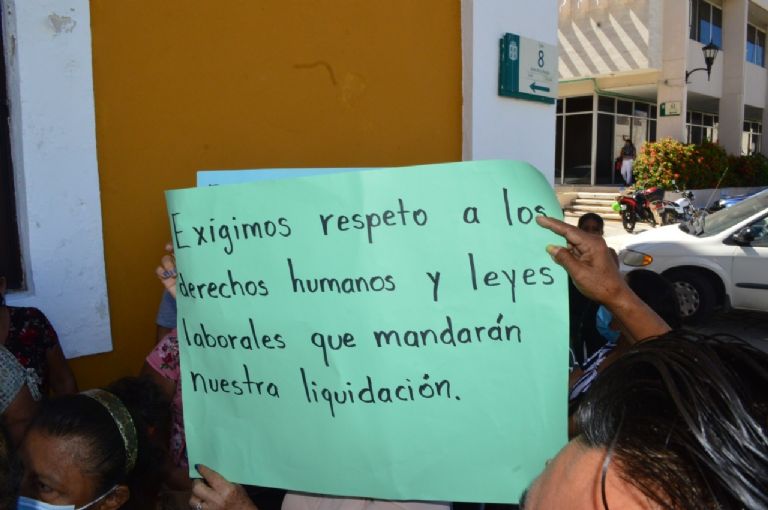 Exigimos respeto a los
derechos humanos y leyes
laborales que mandarán
nuestra liquidación.
8